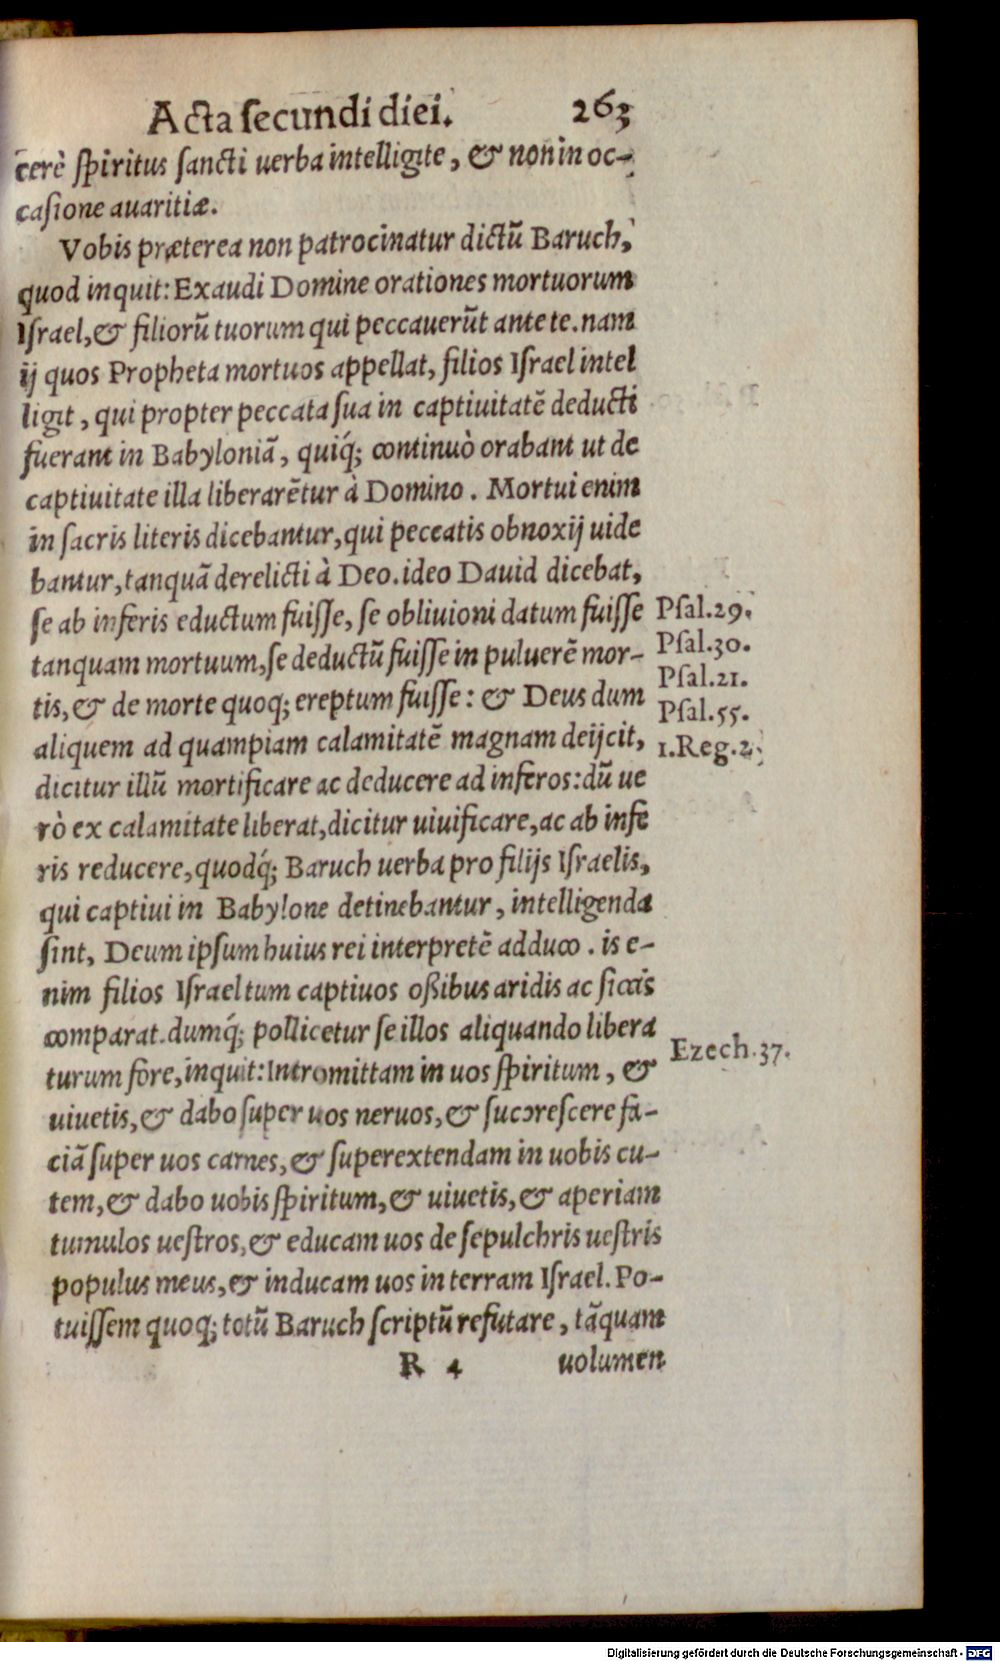 Acta secundi diei. 263
cerè spiritus sancti uerba intelligite, & non in oc-
casione auaritiæ.
Vobis præterea non patrocinatur dictũ Baruch,
quod inquit: Exaudi Domine orationes mortuorum
Israel, & filiorũ tuorum qui peccauerũt ante te. nam
ij quos Propheta mortuos appellat, filios Israel intel
ligit, qui propter peccata sua in captiuitatẽ deducti
fuerant in Babyloniã, quiq́; continuò orabant ut de
captiuitate illa liberarẽtur à Domino. Mortui enim
in sacris literis dicebantur, qui peccatis obnoxij uide
bantur, tanquã derelicti à Deo. ideo Dauid dicebat,
se ab inferis eductum fuisse, se obliuioni datum fuisse Psal.29.
tanquam mortuum, se deductũ fuisse in puluerẽ mor- Psal.30.
tis, & de morte quoq; ereptum fuisse: & Deus dum Psal.21.
Psal.55.
aliquem ad quampiam calamitatẽ magnam deijcit, 1.Reg.2.
dicitur illũ mortificare ac deducere ad inferos: dũ ue
rò ex calamitate liberat, dicitur uiuificare, ac ab infe
ris reducere, quodq́; Baruch uerba pro filijs Israelis,
qui captiui in Babylone detinebantur, intelligenda
sint, Deum ipsum huius rei interpretẽ adduco. is e-
nim filios Israel tum captiuos ossibus aridis ac siccis
comparat. dumq́; pollicetur se illos aliquando libera
turum fore, inquit: Intromittam in uos spiritum, & Ezech.37.
uiuetis, & dabo super uos neruos, & succrescere fa-
ciã super uos carnes, & superextendam in uobis cu-
tem, & dabo uobis spiritum, & uiuetis, & aperiam
tumulos uestros, & educam uos de sepulchris uestris
populus meus, & inducam uos in terram Israel. Po-
tuissem quoq; totũ Baruch scriptũ refutare, tãquam
R 4 uolumen
Digitalisierung gefördert durch die Deutsche Forschungsgemeinschaft - DFG